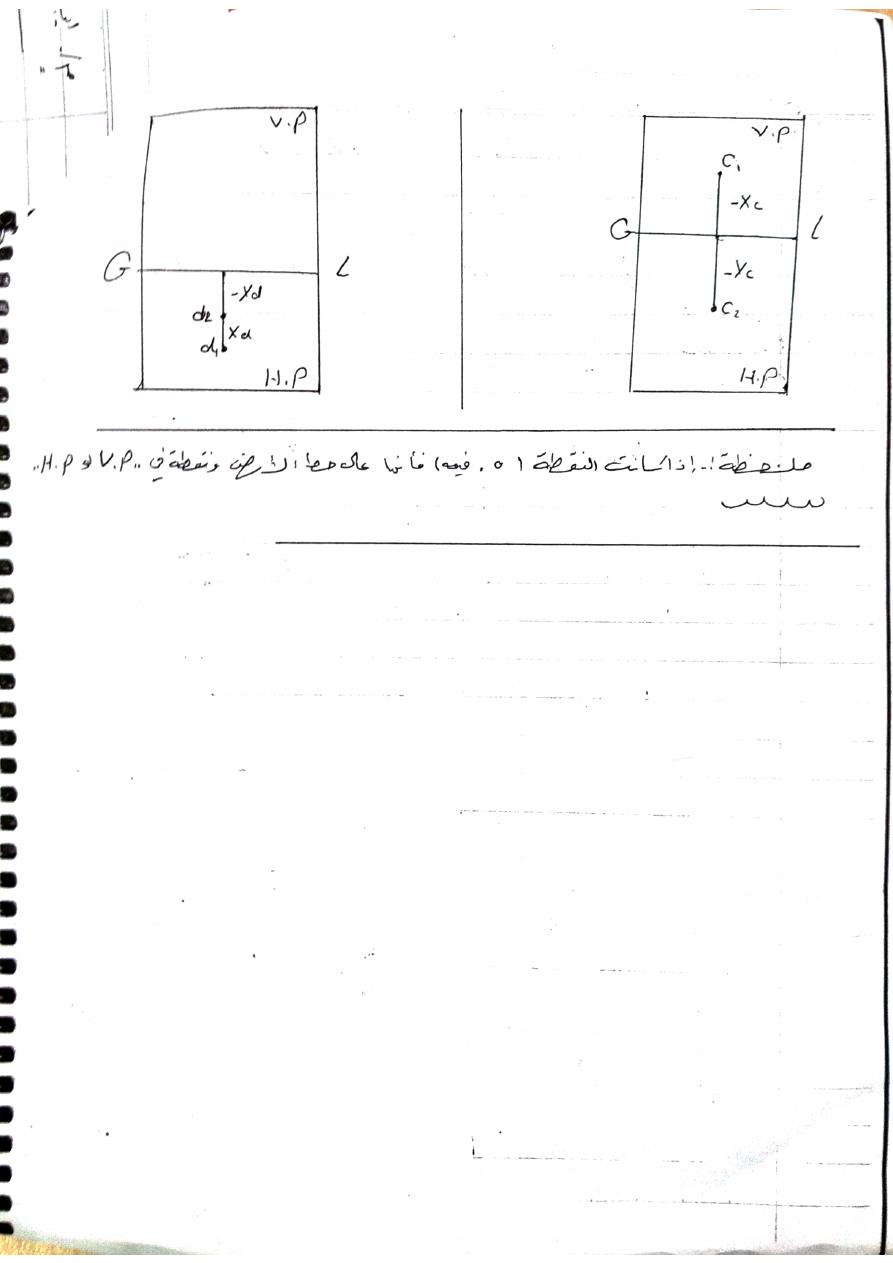 V.P
G L
-Yd
d2
Xd
d1
H.P
V.P
C1
-Xc
G L
-Yc
C2
H.P
ملاحظة :- إذا كانت النقطة ( 0 ، قيمة ) فأنها على خط الارض ونقطة في "V.P او H.P"